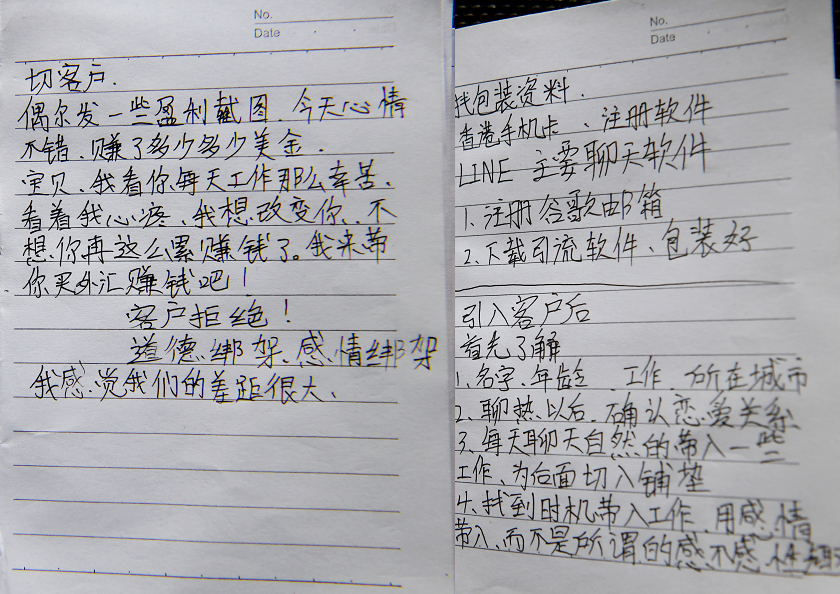 No.
Date
切客户.
偶尔发一些盈利截图. 今天心情
不错. 赚了多少多少美金.
宝贝. 我看你每天工作那么幸苦.
看着我心疼. 我想改变你. 不
想你再这么累赚钱了。我来带
你买外汇赚钱吧!
客户拒绝!
道德绑架、感情绑架
我感觉我们的差距很大.
No.
Date
找包装资料.
香港手机卡、注册软件
LINE 主要聊天软件
1. 注册谷歌邮箱
2. 下载引流软件、包装好
引入客户后
首先了解
1. 名字、年龄、工作、所在城市
2. 聊热以后、确认恋爱关系
3. 每天聊天自然的带入一些
工作、为后面切入铺垫
4. 找到时机带入工作、用感情
带入、而不是所谓的感不感